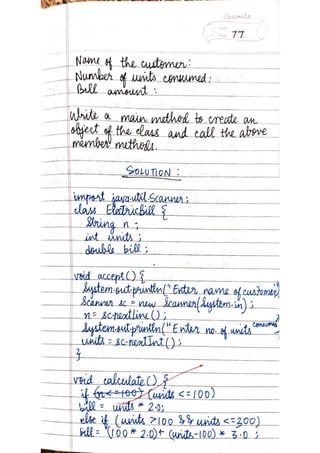 classmate
Date
Page 77
Name of the customer:
Number of units consumed:
Bill amount:
Write a main method to create an
object of the class and call the above
member methods.
SOLUTION :
import java.util.Scanner;
class ElectricBill {
String n;
int units;
double bill;
void accept() {
System.out.println("Enter name of customer");
Scanner sc = new Scanner(System.in);
n = sc.nextLine();
System.out.println("Enter no. of units consumed");
units = sc.nextInt();
}
void calculate() {
if (n<=100) (units <=100)
bill = units * 2.0;
else if (units >100 && units <=300)
bill = (100 * 2.0) + (units-100) * 3.0;